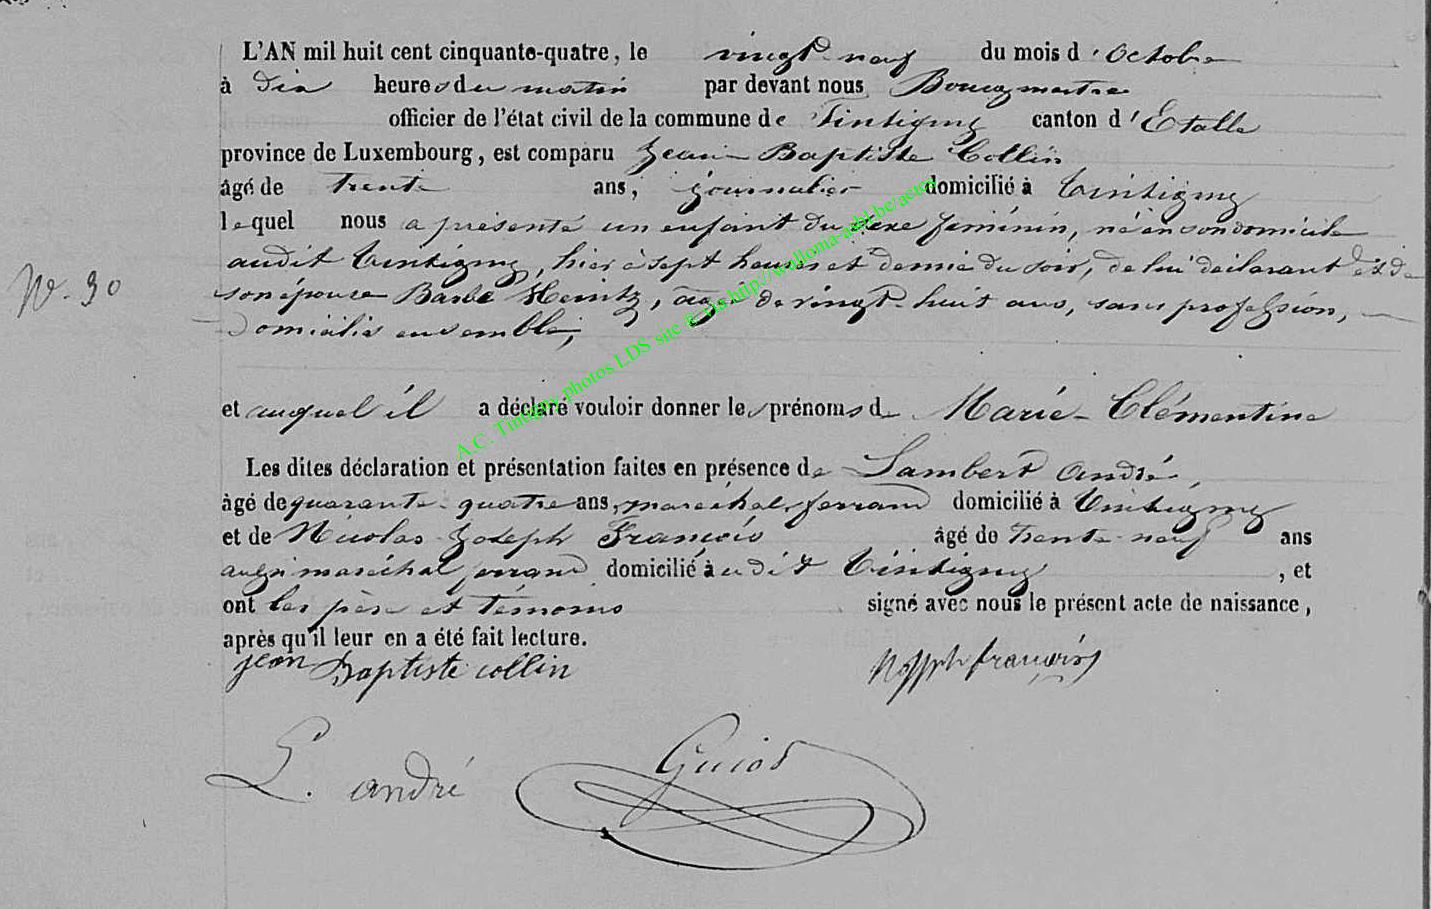 L'AN mil huit cent cinquante-quatre, le vingt neuf du mois d'Octobre
à dix heures du matin par devant nous Bourgmestre
officier de l'état civil de la commune de Tintigny canton d'Etalle
province de Luxembourg, est comparu Jean-Baptiste Collin
âgé de trente ans, journalier domicilié à Tintigny
lequel nous a présenté un enfant du sexe féminin, né en son domicile
audit Tintigny, hier à sept heures et demie du soir, de lui déclarant et de
N. 90
son épouse Barbe Heintz, âgé de vingt-huit ans, sans profession,
domicilié ensemble,
et auquel il a déclaré vouloir donner les prénoms de Marie-Clémentine
Les dites déclaration et présentation faites en présence de Lambert André,
âgé de quarante-quatre ans, maréchal ferrand domicilié à Tintigny
et de Nicolas Joseph François âgé de trente-neuf ans
aussi maréchal ferrand domicilié audit Tintigny, et
ont les père et témoins signé avec nous le présent acte de naissance,
après qu'il leur en a été fait lecture.
jean Baptiste collin
françois
L. andré
Guiot
A.C. Tintigny photos LDS site & via http://walloma-asbl.be/actos